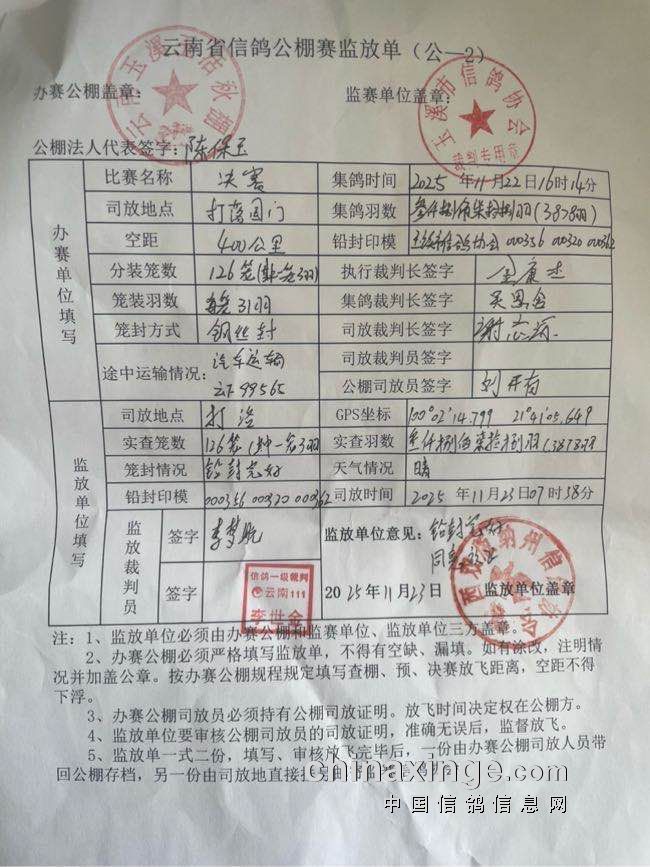 云南省信鸽公棚赛监放单（公—2）
办赛公棚盖章： 监赛单位盖章：
玉溪市信鸽协会
公棚法人代表签字：陈保玉
办赛单位填写
比赛名称 决赛 集鸽时间 2025年11月22日16时14分
司放地点 打洛国门 集鸽羽数 叁仟捌佰柒拾捌羽(3878羽)
空距 400公里 铅封印模 000356 000320 000362
分装笼数 126笼 执行裁判长签字
笼装羽数 每笼31羽 集鸽裁判长签字
笼封方式 钢丝封 司放裁判长签字
途中运输情况： 汽车运输 99565 司放裁判员签字
公棚司放员签字
监放单位填写
司放地点 打洛 GPS坐标 100°02′14.799 21°41′05.649
实查笼数 126笼 实查羽数 叁仟捌佰柒拾捌羽
笼封情况 铅封完好 天气情况 晴
铅封印模 000356 000320 000362 司放时间 2025年11月23日07时38分
监放裁判员 签字 监放单位意见：铅封完好
签字 信鸽一级裁判 云南111 李世金 2025年11月23日 监放单位盖章
注：1、监放单位必须由办赛公棚和监赛单位、监放单位三方盖章。
2、办赛公棚必须严格填写监放单，不得有空缺、漏填。如有涂改，注明情
况并加盖公章。按办赛公棚规程规定填写查棚、预、决赛放飞距离，空距不得
下浮。
3、办赛公棚司放员必须持有公棚司放证明。放飞时间决定权在公棚方。
4、监放单位要审核公棚司放员的司放证明，准确无误后，监督放飞。
5、监放单一式二份，填写、审核放飞完毕后，一份由办赛公棚司放人员带
回公棚存档，另一份由司放地直接
chinaxinge.com
中国信鸽信息网